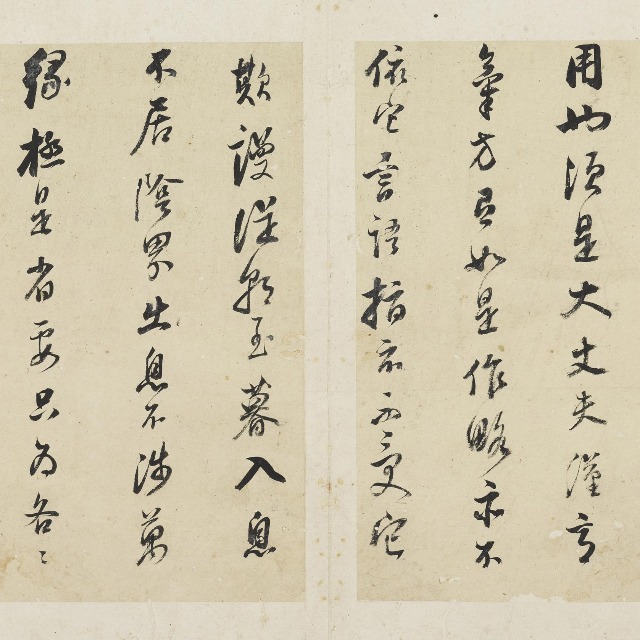 用也須是大丈夫漢
氣方有如是作略亦不
依它言語指示不受它
欺謾從朝至暮入息
不居陰界出息不涉萬
緣極是省要只為各々